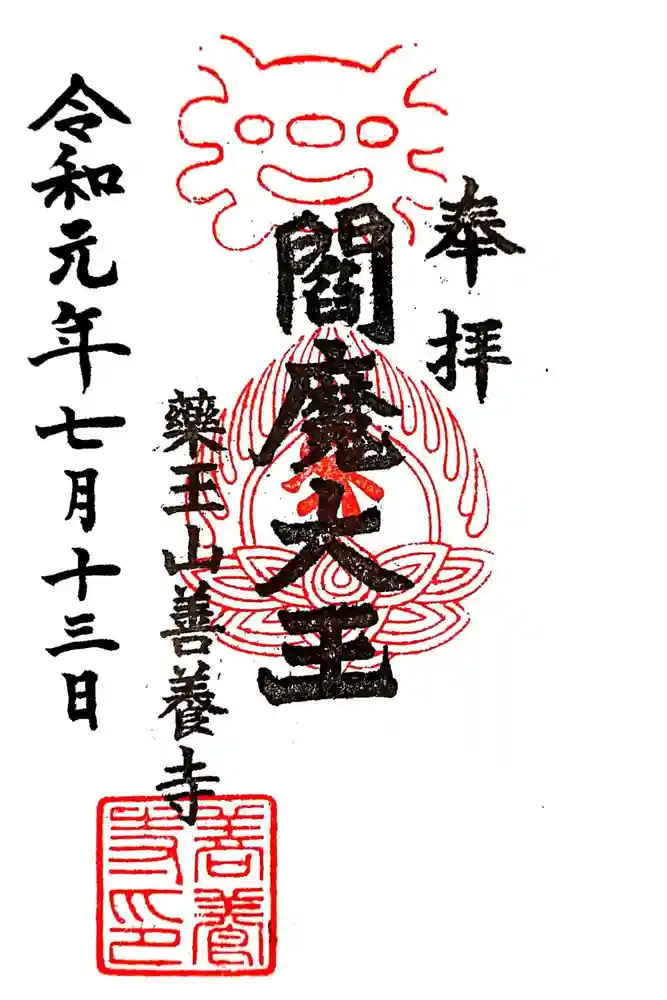 奉拝
閻魔大王
藥王山善養寺
令和元年七月十三日
善養寺印